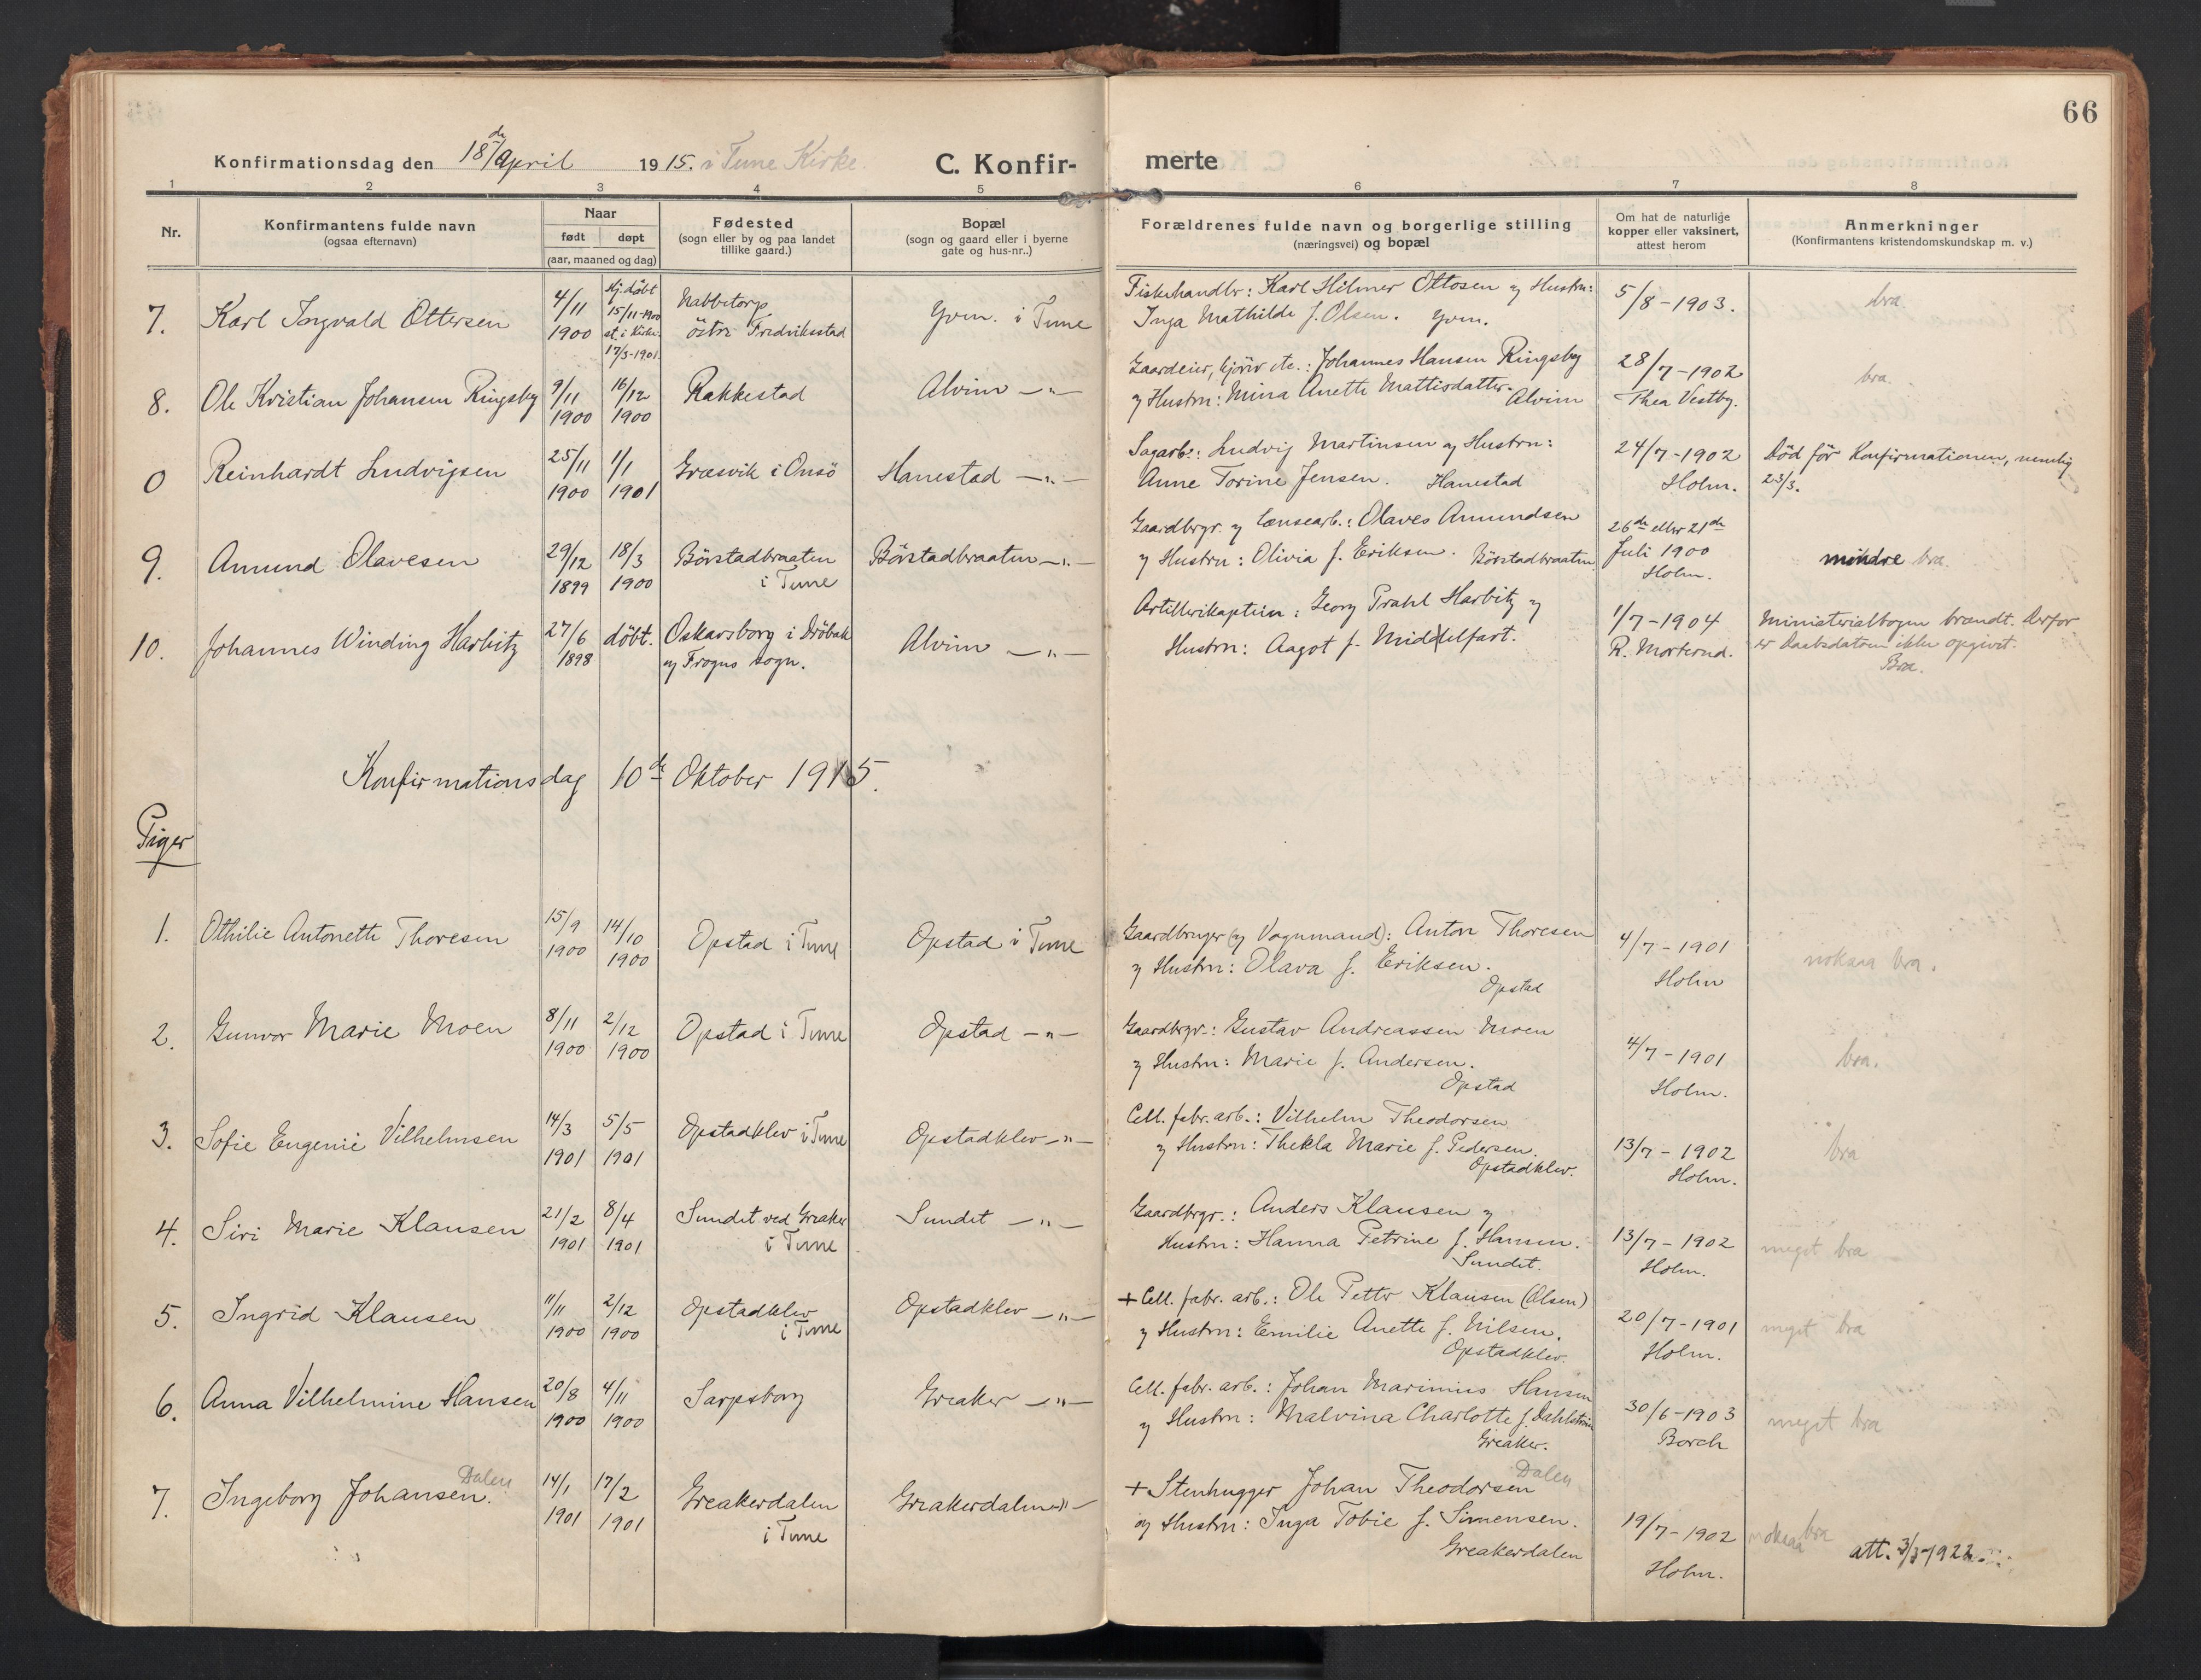 66
Konfirmationsdag den 18de/April 1915. i Tune Kirke. C. Konfir-
merte
1 2 3 4 5 6 7 8
Nr.
Konfirmantens fulde navn
(ogsaa efternavn)
Naar
født døpt
(aar, maaned og dag)
Fødested
(sogn eller by og paa landet
tillike gaard.)
Bopæl
(sogn og gaard eller i byerne
gate og hus-nr..)
Forældrenes fulde navn og borgerlige stilling
(næringsvei) og bopæl
Om hat de naturlige
kopper eller vaksinert,
attest herom
Anmerkninger
(Konfirmantens kristendomskundskap m. v.)
7. Karl Ingvald Ottersen
4/11
1900
Hj. døbt
15/11-1900
st. i Kirke.
17/3-1901
Nabbetorp
östre Fredriksstad
Yven. i Tune
Fiskehandler: Karl Hilmer Ottosen og Hustru:
Inga Mathilde f. Olsen. Yven.
5/8-1903.
bra.
8. Ole Kristian Johansen Ringsby
9/11
1900
16/12
1900
Rakkestad
Alvim —„—
Gaardeier, kjöiv etc.: Johannes Hansen Ringsby
og Hustru: Mina Anette Mattisdatter.
Alvim
28/7-1902
Thea Vestby.
bra.
0 Reinhardt Ludvigsen
25/11
1900
1/1
1901
Græsvik i Onsö
Hanestad —„—
Sagarb.: Ludvig Martinsen og Hustru:
Anne Torine Jensen. Hanestad
24/7-1902
Holm.
Död för Konfirmationen, nemlig
23/3.
9. Amund Olavesen
29/12
1899
18/3
1900
Börstadbraaten
i Tune
Börstadbraaten —„—
Gaardbrgr. og Lensearb.: Olaves Amundsen
og Hustru: Olivia f. Eriksen. Börstadbraaten
26de eller 21de
Juli 1900
Holm.
mindre bra.
10. Johannes Winding Harbitz
27/6
1898
döbt.
Oskarsborg i Dröbak
og Frogns sogn.
Alvim —„—
Artillerikaptein: Georg Prahl Harbitz og
Hustru: Aagot f. Middelfart.
1/7-1904
R. Morterud.
Ministerialbogen brændt. Derfor
er Daabsdatoen ikke opgivet.
Bra.
Konfirmationsdag 10de Oktober 1915.
Piger
1. Othilie Antonette Thoresen
15/9
1900
14/10
1900
Opstad i Tune
Opstad i Tune
Gaardbruger (og Vognmand): Anton Thoresen
og Hustru: Olava f. Eriksen.
Opstad
4/7-1901
Holm
nokaa bra.
2. Gunvor Marie Moen
8/11
1900
2/12
1900
Opstad i Tune
Opstad —„—
Gaardbrgr.: Gustav Andreassen Moen
og Hustru: Marie f. Andersen.
Opstad
4/7-1901
Holm.
bra.
3. Sofie Eugenie Vilhelmsen
14/3
1901
5/5
1901
Opstadklev i Tune
Opstadklev —„—
Cell. fabr. arb.: Vilhelm Theodorsen
og Hustru: Thekla Marie f. Pedersen.
Opstadklev.
13/7-1902
Holm.
bra
4. Siri Marie Klausen
21/2
1901
8/4
1901
Sundet ved Greaker
i Tune
Sundet —„—
Gaardbrgr.: Anders Klausen og
Hustru: Hanna Petrine f. Hansen.
Sundet.
13/7-1902
Holm.
meget bra
5. Ingrid Klausen
11/11
1900
2/12
1900
Opstadklev
i Tune
Opstadklev —„—
+ Cell. fabr. arb.: Ole Petter Klausen (Olsen)
og Hustru: Emilie Anette f. Nilsen.
Opstadklev.
20/7-1901
Holm.
meget bra
6. Anna Vilhelmine Hansen
20/8
1900
4/11
1900
Sarpsborg
Greaker —„—
Cell. fabr. arb.: Johan Marinius Hansen
og Hustru: Malvina Charlotte f. Dahlström
Greaker.
30/6-1903
Borch
meget bra
7. Ingeborg Johansen. Dalen
14/1
1901
17/2
1901
Greakerdalen
i Tune
Greakerdalen —„—
+ Stenhugger Johan Theodorsen Dalen
og Hustru: Inga Tobie f. Simensen.
Greakerdalen
19/7-1902
Holm.
nokaa bra
att. 3/3-1922